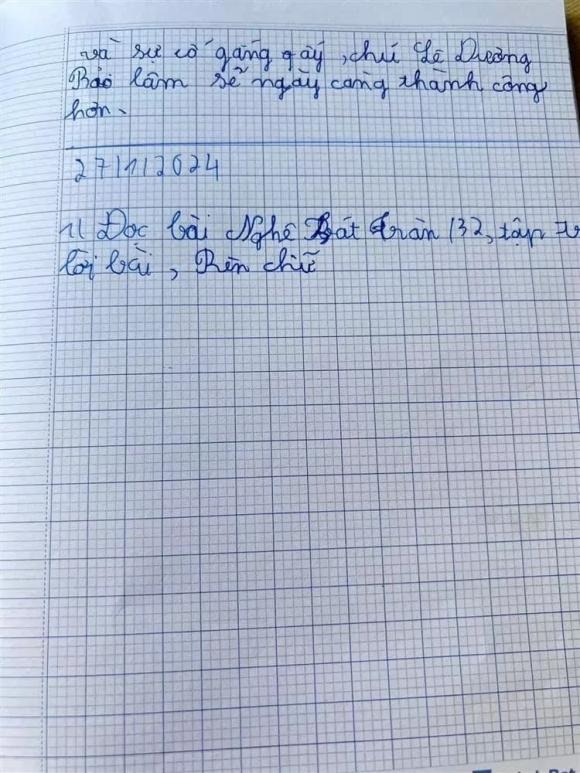 và sự cố gắng ấy, chú Lê Dương
Bảo lâm sẽ ngày càng thành công
hơn.
27/11/2024
1/ Đọc bài Nghề Bát tràn 132, tập
lời bài, Rèn chữ